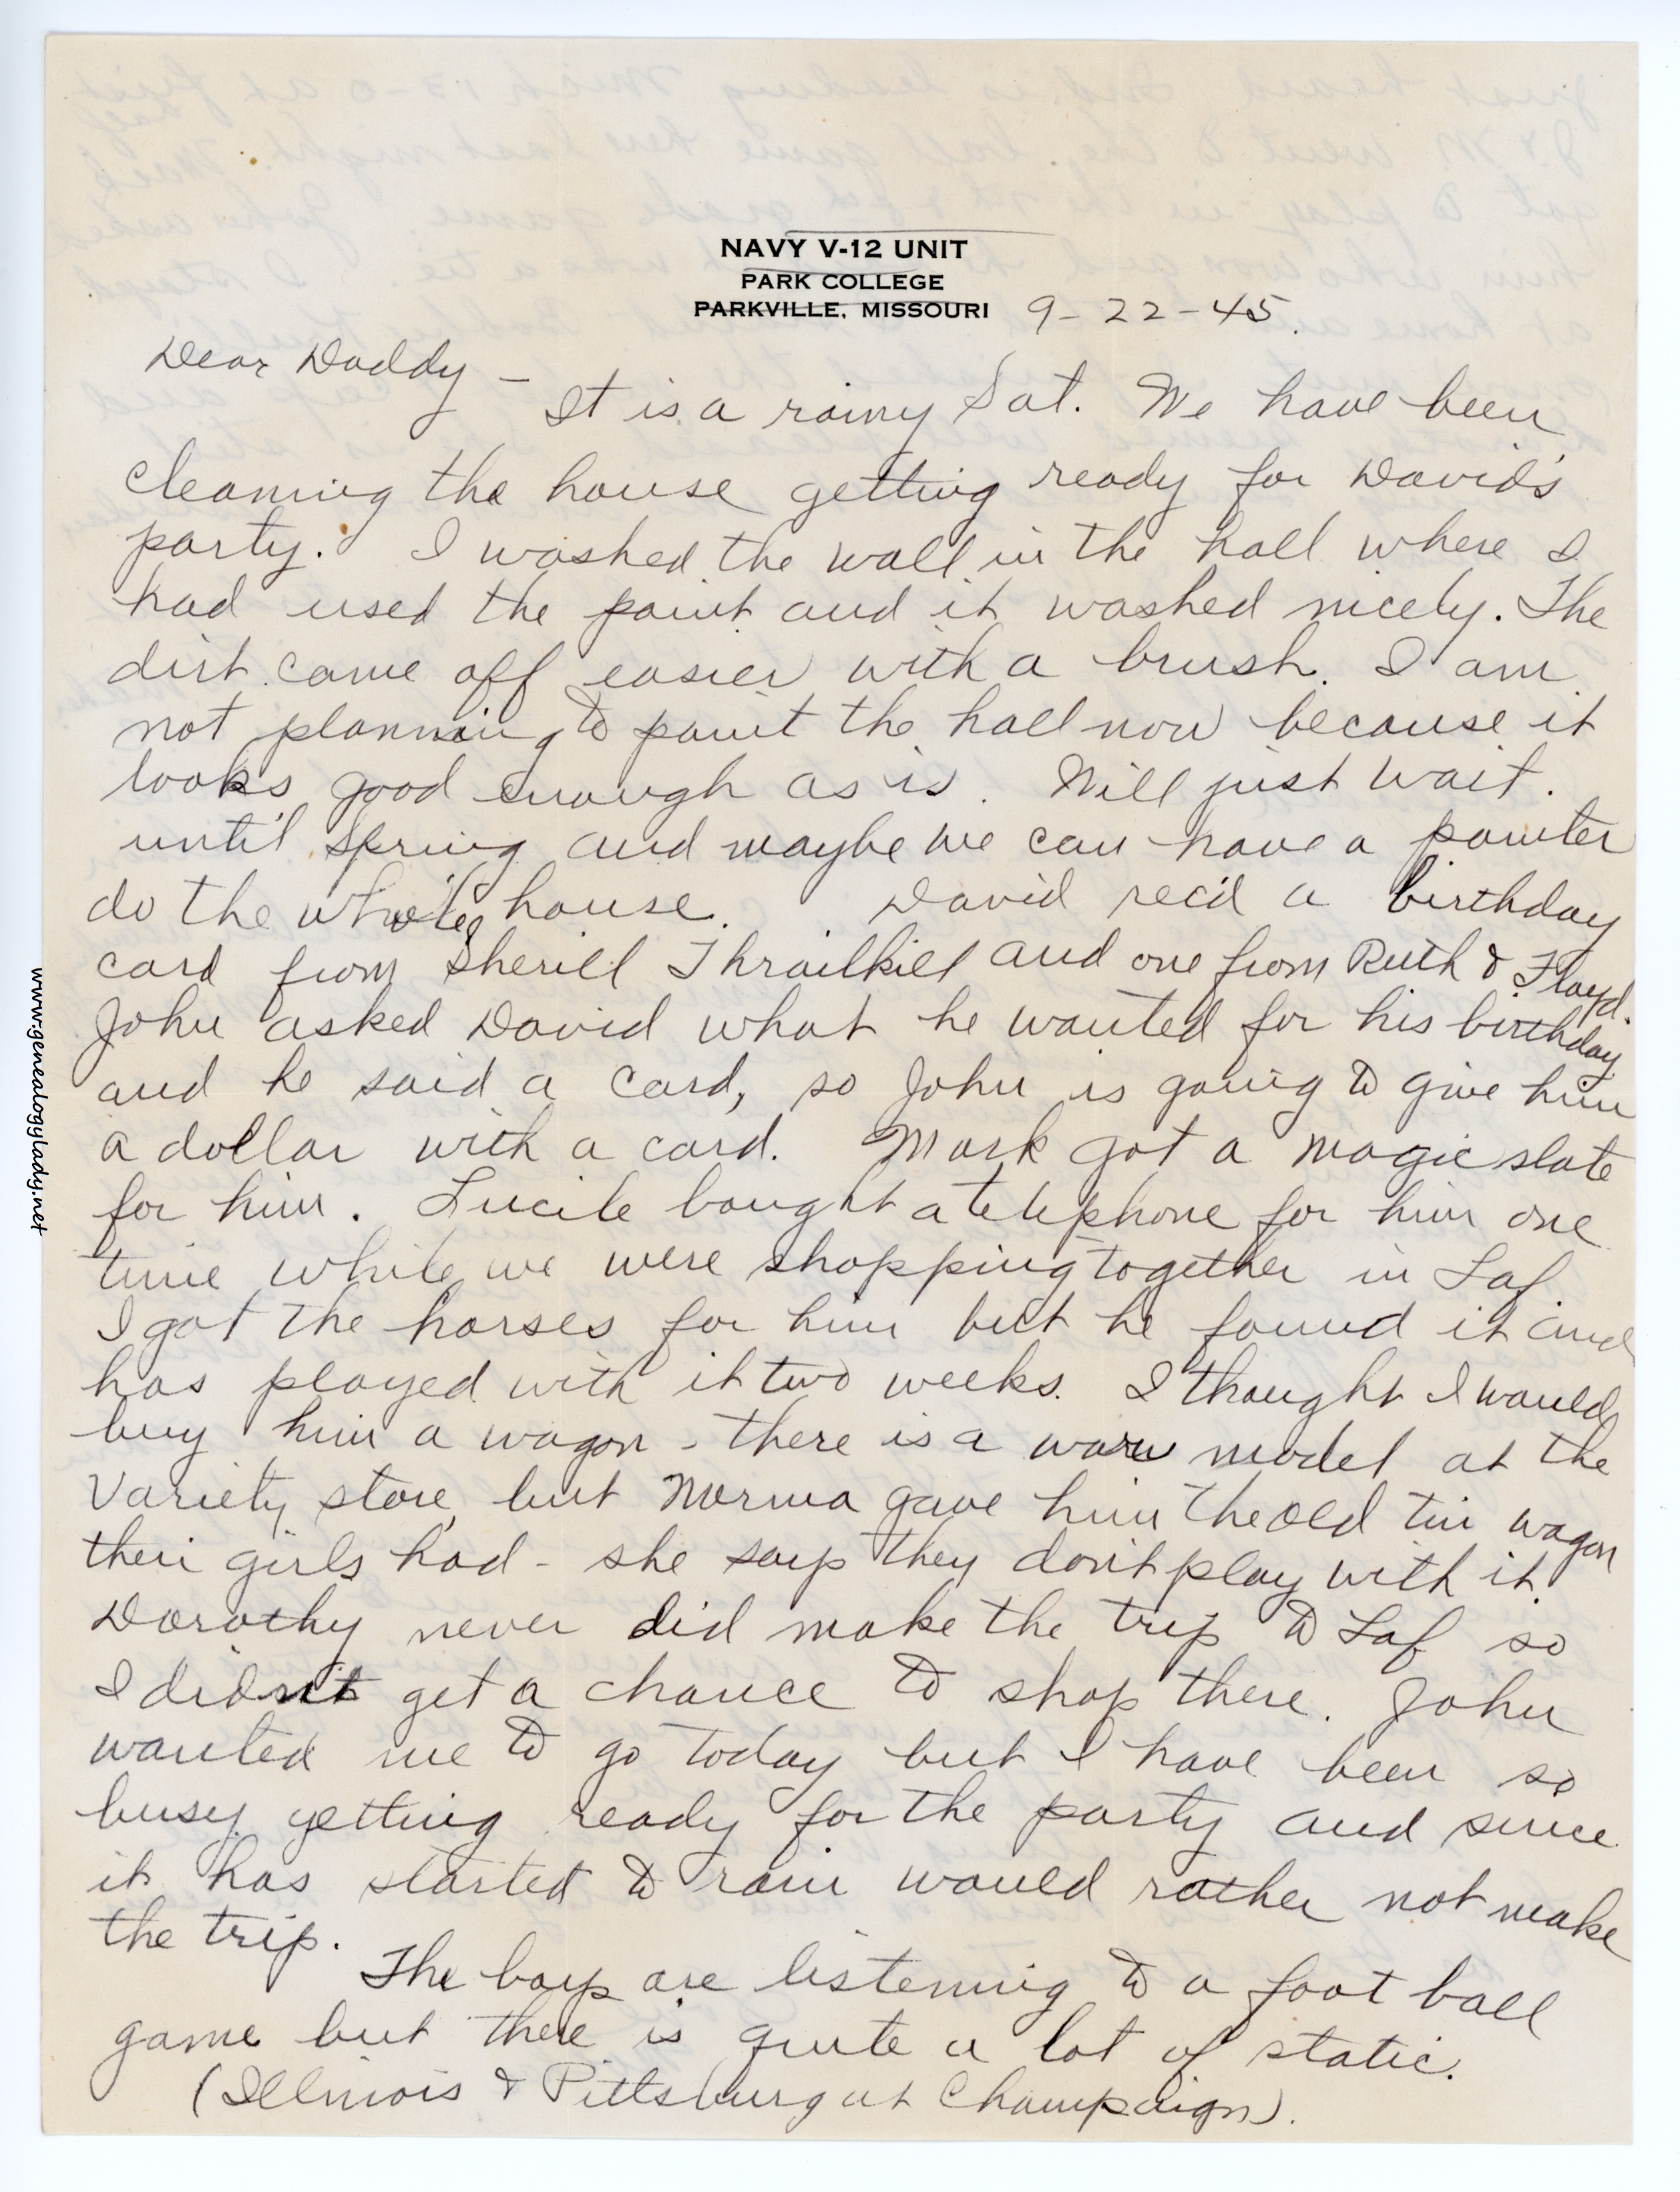 NAVY V-12 UNIT
PARK COLLEGE
PARKVILLE, MISSOURI 9-22-45.
Dear Daddy -
It is a rainy Sat. We have been
cleaning the house getting ready for David's
party. I washed the wall in the hall where I
had used the paint and it washed nicely. The
dirt came off easier with a brush. I am
not planning to paint the hall now because it
looks good enough as is. Will just wait.
until spring and maybe we can have a painter
do the whole house. David rec'd a birthday
card from Sherill Thrailkill and one from Ruth & Floyd.
John asked David what he wanted for his birthday
and he said a card, so John is going to give him
a dollar with a card. Mark got a magic slate
for him. Lucile bought a telephone for him one
time while we were shopping together in Laf.
I got the horses for him but he found it and
has played with it two weeks. I thought I would
buy him a wagon - there is a war model at the
Variety store, but Norma gave him the old tin wagon
their girls had - she says they don't play with it.
Dorothy never did make the trip to Laf so
I didn't get a chance to shop there. John
wanted me to go today but I have been so
busy getting ready for the party and since
it has started to rain would rather not make
the trip.
The boys are listening to a foot ball
game but there is quite a lot of static.
(Illinois & Pittsburg at Champaign).
www.genealogylady.net